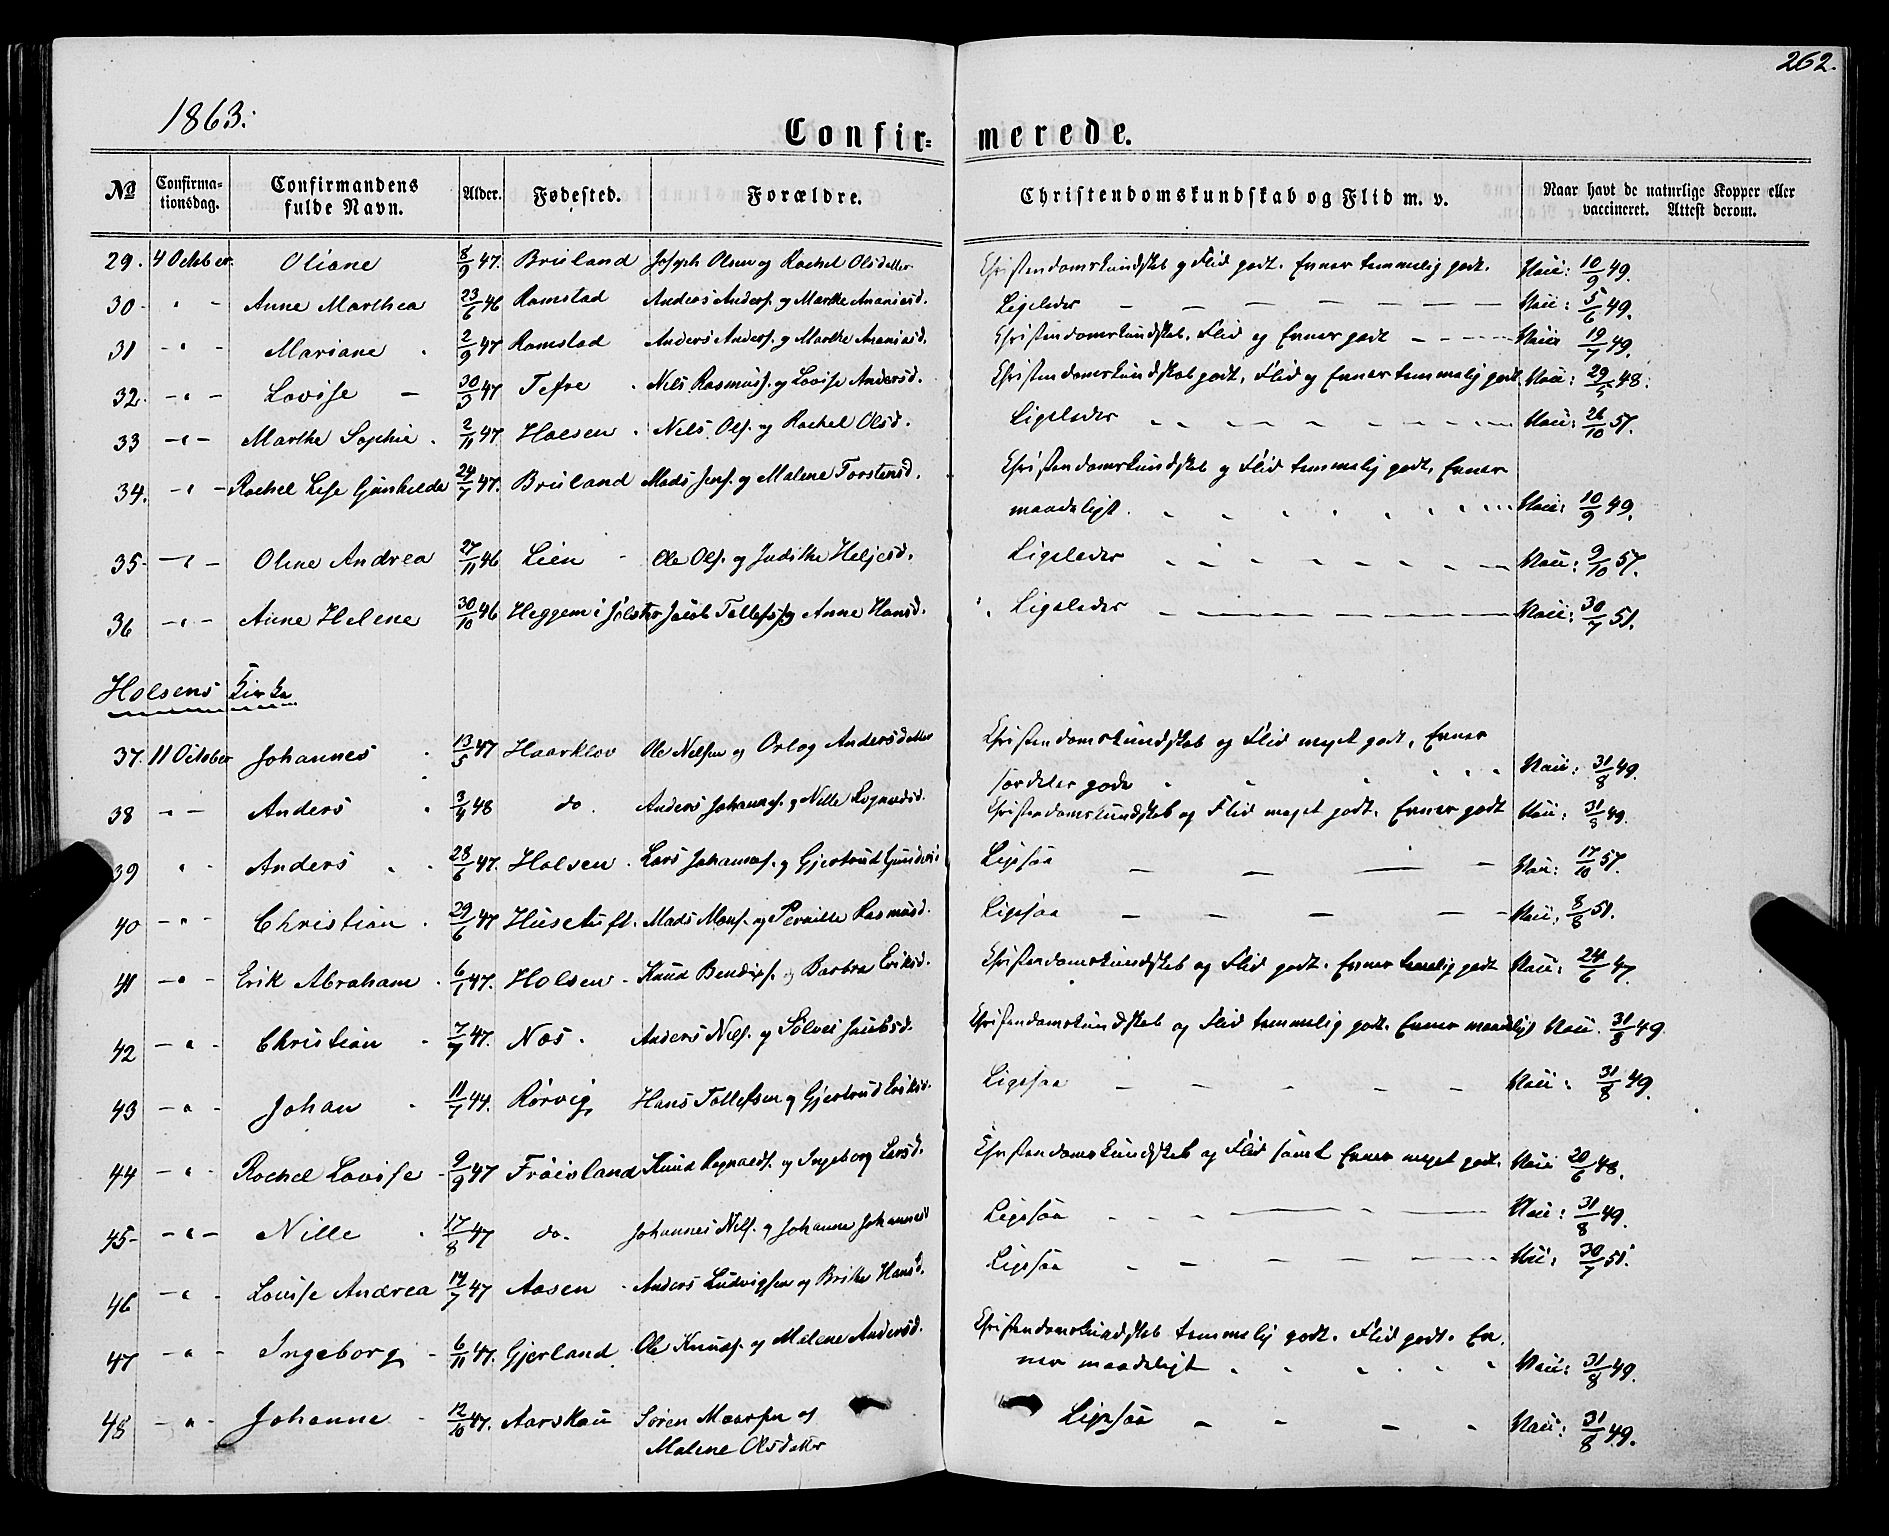 262.
1863.
Confir- merede.
No Confirmationsdag. Confirmandens fulde Navn. Alder. Fødested. Forældre. Christendomskundskab og Flid m. v. Naar havt de naturlige Kopper eller vaccineret. Attest derom.
29. 4 October. Oliane 8/9 47. Bruland Joseph Olsen og Rachel Olsdatter Christendomskundskab og Flid godt. Evner temmelig godt. Vacc: 10/9 49.
30 - " - Anne Marthea 23/6 46 Ramstad Anders Anders. og Marthe Ananiasd. Ligeledes — — — Vacc: 5/6 49.
31 - " - Mariane 2/9 47 Ramstad Anders Anders. og Marthe Ananiasd. Christendomskundskab, Flid og Evner godt - - - Vacc 19/7 49.
32. - " - Lovise — 30/3 47 Tefre Nils Rasmuss. og Lovise Andersd. Christendomskundskab godt, Flid og Evner temmelig godt. Vacc: 29/5 48.
33 - " - Marthe Sophie. 2/11 47. Holsen. Nils Ols. og Rachel Olsd. Ligeledes Vacc: 26/10 57.
34. - " - Rachel Lise Gunhilda 24/7 47. Bruland Mads Jens. og Malene Torstensd. Christendomskundskab og Flid temmelig godt, Evner
maadeligt. Vacc: 10/9 49.
35. - " - Oline Andrea 27/11 46 Lien Ole Ols. og Judithe Heljesd. Ligeledes Vacc: 9/10 57.
36 - " - Anne Helene 30/10 46 Heggem i Jølster Jacob Tollefs. og Anne Hansd. Ligeledes Vacc: 30/7 51.
Holsens Kirke
37. 11 October Johannes 13/5 47 Haarklov Ole Nilsen og Orlog Andersdatter Christendomskundskab og Flid meget godt, Evner
særdeles gode Vacc: 31/8 49.
38 - " - Anders 3/4 48 do. Anders Johanness. og Nille Rognaldsd. Christendomskundskab og Flid meget godt. Evner godt Vacc: 31/8 49.
39 " - Anders 28/6 47. Holsen. Lars Johanness. og Gjertrud Ligesaa — — — Vacc: 17/10 57.
40 - " - Christian. 29/6 47 Husetuft. Mads Mons. og Pernille Rasmusd. Ligesaa — — — Vacc: 8/8 51.
41 - " - Erik Abraham. 6/1 47. Holsen - Knud Bendixs. og Barbra Eriksd. Christendomskundskab og Flid godt. Evner temelig godt Vacc: 24/6 47.
42 - " - Christian 7/7 47. Nos. Anders Nils. og Sølvei Jacobsd. Christendomskundskab og Flid temmelig godt. Evner maadeligt Vacc. 31/8 49.
43 - " - Johan 11/7 47. Rørvig Hans Tollefsen og Gjertrud Eriksd. Ligesaa — — — Vacc: 31/8 49.
44 - " - Rachel Lovise - 9/9 47 Frøisland Knud Rognalds. og Ingeborg Larsd. Christendomskundskab og Flid samt Evner meget godt. Vacc 20/6 48.
45 - " - Nille 17/8 47 do. Johannes Nils. og Johanne Johannesd Ligesaa Vacc: 31/8 49.
46 - " - Lovise Andrea 14/7 47 Aasen - Anders Ludvigsen og Brithe Hansd. Ligesaa — — — Vacc: 30/7 51.
47 - " - Ingeborg - 6/11 47. Gjerland Ole Knuds. og Malene Andersd. Christendomskundskab temmelig godt. Flid godt. Ev-
ner maadeligt Vacc: 31/8 49.
48 - " - Johanne - 12/10 47. Aarskau Søren Maarsen og Ligesaa — — — Vacc: 31/8 49.
Malene Olsdatter